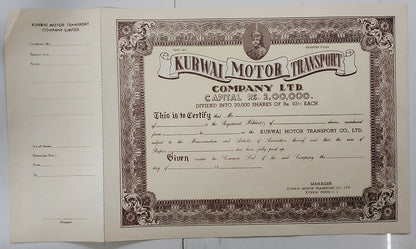 KURWAI MOTOR TRANSPORT
COMPANY LIMITED.
Certificate No.
Register Folio
Name
No. of Shares
Distinctive Nos.
From
To
Manager
CERT. NO.
REGISTER FOLIO
KURWAI MOTOR TRANSPORT
COMPANY LTD.
CAPITAL RS. 2,00,000.
DIVIDED INTO 20,000 SHARES OF Rs. 10/- EACH
This is to Certify that Mr.
of is the Registered Holder(s) of shares numbered
from to in the KURWAI MOTOR TRANSPORT CO., LTD.
subject to the Memorandum and Articles of Association thereof and that the sum of
Rupees has been fully paid up.
Given under the Common Seal of the said Company this
day of 19
MANAGER
KURWAI MOTOR TRANSPORT CO., LTD.
KURWAI STATE C. I.